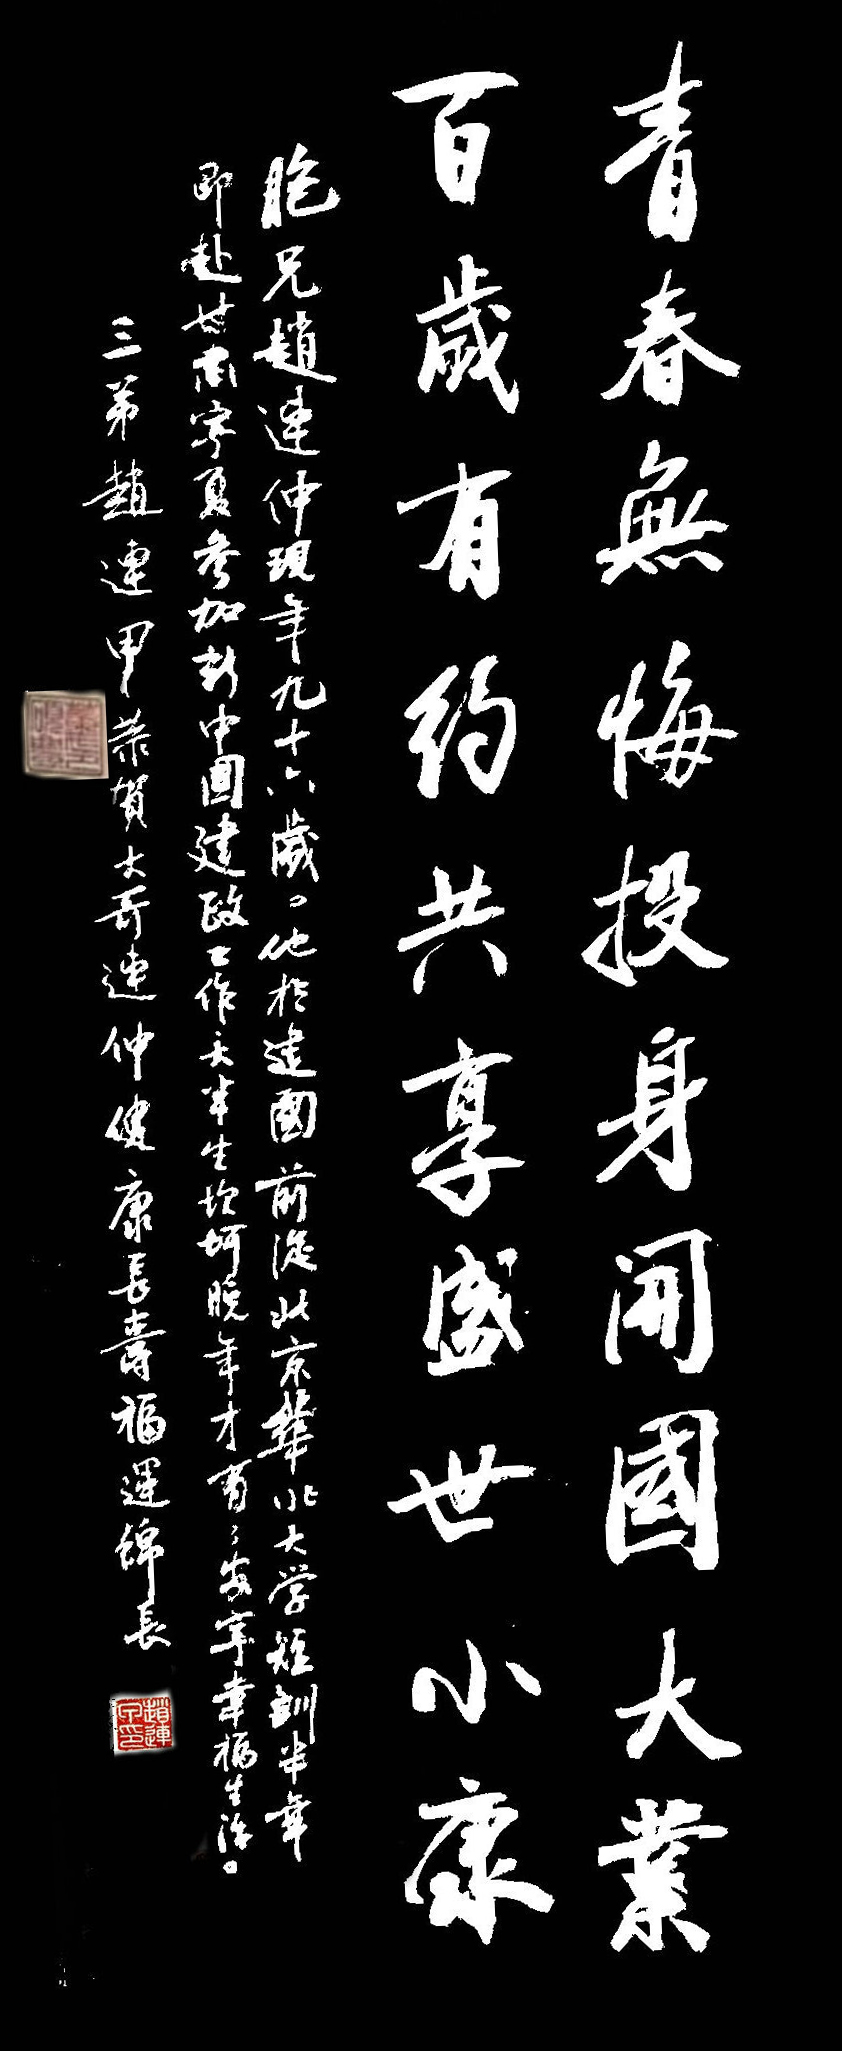 青春無悔投身開國大業
百歲有約共享盛世小康
胞兄趙連仲現年九十六歲。他於建國前從北京華北大学短訓半年
即赴甘肃寧夏参加新中國建政工作大半生坎坷晚年才有安寧幸福生活。
三弟趙連甲恭賀大哥連仲健康長壽福運綿長
趙連甲印